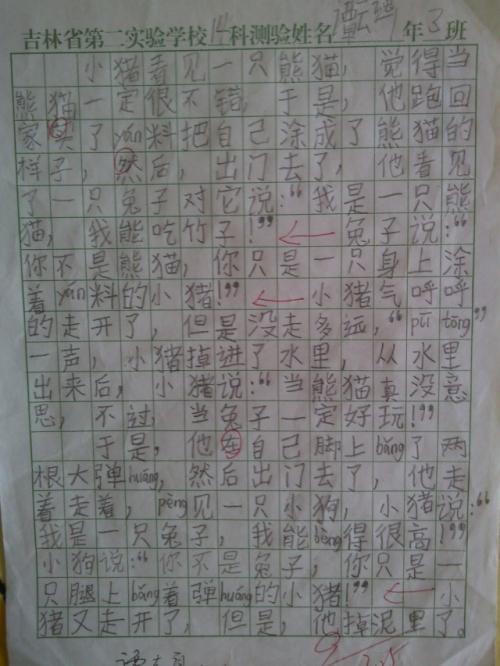 吉林省第二实验学校14科测验姓名 年3班
小猪看见一只熊猫，觉得当
熊猫一定很不错，于是，他跑回
家买了yán料把自己涂成了熊猫的
样子，然后，出门去了，他看见
了一只兔子对它说：“我是一只熊
猫，我能吃竹子！”兔子说：“
你不是熊猫，你只是一只身上涂
着yán料的小猪！”小猪气呼呼
的走开了，但是没走多远，“pū tōng”
一声，小猪掉进了水里，从水里
出来后，小猪说：“当熊猫真没意
思，不过，当兔子一定好玩！”
于是，他在自己脚上bǎng了两
根大弹huáng，然后出门去了，他走
着走着，pèng见一只小狗，小猪说：“
我是一只兔子，我能bèng得很高！”
小狗说：“你不是兔子，你只是一
只腿上bǎng着弹huáng的小猪！”小
猪又走开了，但是，他掉泥里了。